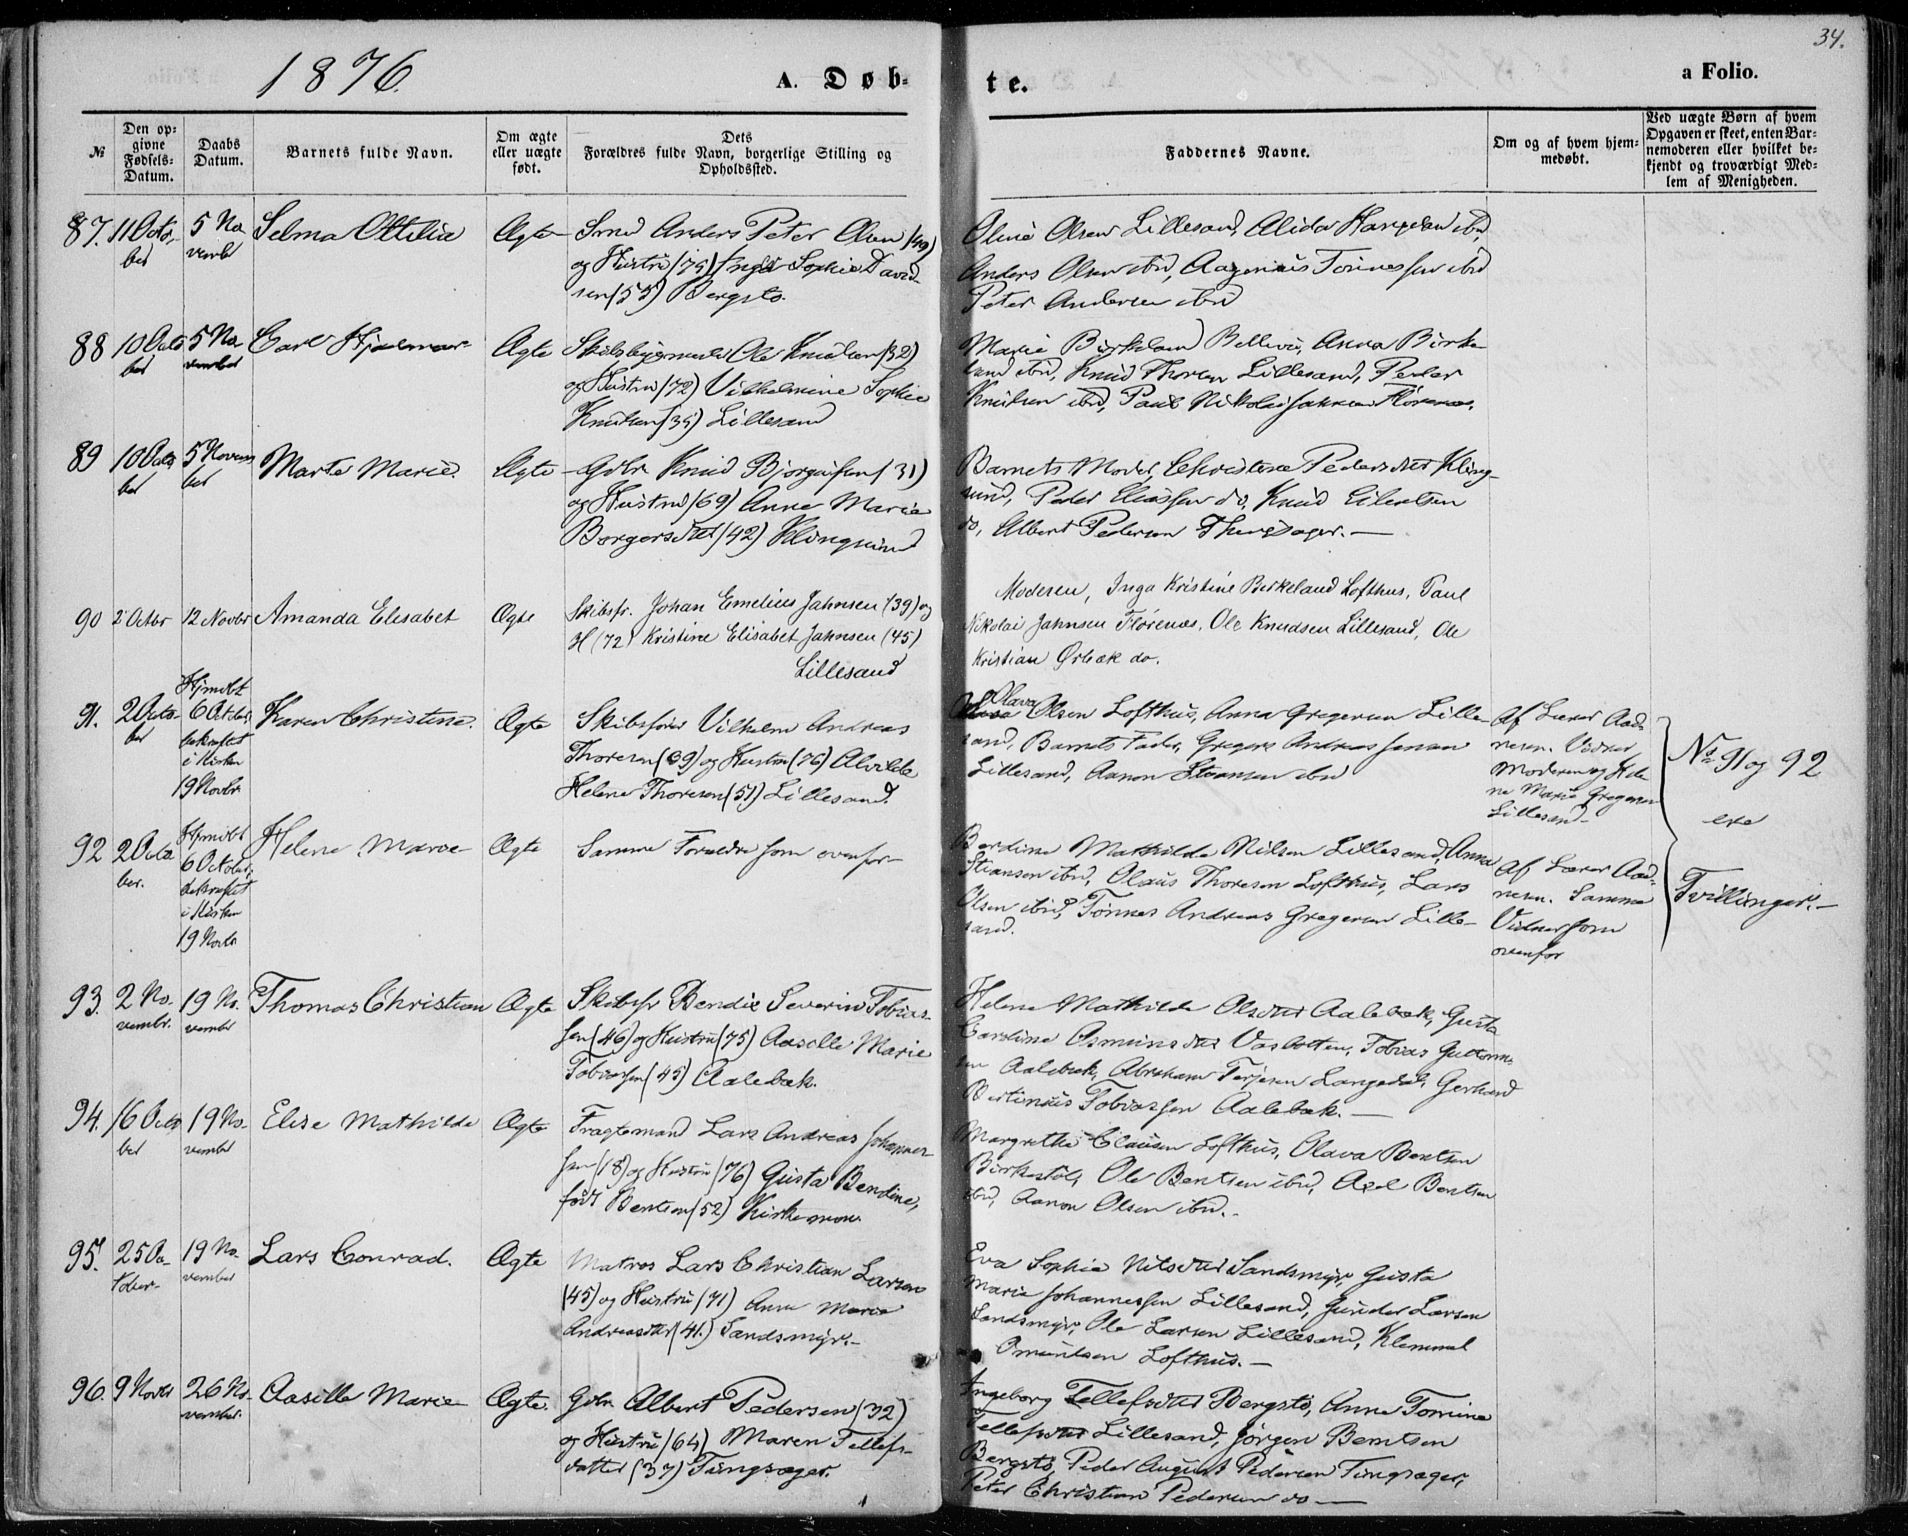 1876.
A. Døb-
te.
a Folio.
34.
№
Den op-
givne
Fødsels-
Datum.
Daabs
Datum.
Barnets fulde Navn.
Om ægte
eller uægte
født.
Dets
Forældres fulde Navn, borgerlige Stilling og
Opholdssted.
Faddernes Navne.
Om og af hvem hjem-
medøbt.
Ved uægte Børn af hvem
Opgaven er skeet, enten Bar-
nemoderen eller hvilket be-
kjendt og troværdigt Med-
lem af Menigheden.
87. 11 Octo- 5 No Selma Ottilia Ægte Smed Anders Peter Olsen (49)
ber vembr og Hustru (75) Inger Sophie David-
sen (55) Bergstø.
Oline Olsen Lillesand, Alida ibd,
Anders Olsen ibd, Aagenius Tønnessen ibd
Peter Andersen ibd
88 10 Octo 5 No Carl Hjalmar Ægte Skibsbygmester Ole Knudsen (32)
ber vember og Hustru (72) Vilhelmine Sophie
Knudsen (35) Lillesand
Marie Birkeland Bellevu, Anna Birke-
land ibd, Knud Thorsen Lillesand, Peder
Knudsen ibd, Paul Nikolai Jahnsen Florenes.
89 10 Octo 5 Novem Marte Marie. Ægte Gdbr Knud Bjorgufsen (31)
ber ber og Hustru (69) Anne Marie
Borgersdatt (42) Klingsund
Barnets Moder, Christense Pedersdtt Kling-
sund, Peder Eliassen do, Knud Eilertsen
do, Albert Pedersen Thingsager.
90 2 Octbr 12 Novbr Amanda Elisabet Ægte Skibsfr. Johan Emelius Jahnsen (39) og
H (72) Kristine Elisabet Jahnsen (45)
Lillesand
Moderen, Inga Kristine Birkeland Lofthus, Paul
Nikolai Jahnsen Florenæs, Ole Knudsen Lillesand, Ole
Kristian Ørbæk do.
91. 2 Octo- Hjmdbt Karen Christine. Ægte Skibsfører Vilhelm Andreas
ber 6 Octobr, Thoresen (69) og Hustru (76) Alvilde
bekræftet Helene Thoresen (51) Lillesand.
i Kirken
19 Novbr
Olava Olsen Lofthus, Anna Gregersen Lille-
sand, Barnets Fader, Gregers Andreas Jensen
Lillesand, Aanon Stiansen ibd
Af Lærer Aad-
nesen. Vidner
Moderen og Hele
ne Marie Gregersen
Lillesand-
No 91 og 92
ere
Tvillinger.-
92 2 Octo Hjmdbt Helene Marie Ægte Samme Forældre som ovenfor-
ber. 6 Octobr,
bekræftet
i Kirken
19 Novbr
Berdine Mathilde Nilsen Lillesand, Anna
Stiansen ibid, Olaus Thoresen Lofthus, Lars
Olsen ibid, Tønnes Andreas Gregersen Lille-
sand.
Af Lærer Aad-
nesen. Samme
Vidner som
ovenfor
93. 2 No. 19 No. Thomas Christian Ægte Skibsfr Bendix Severin Tobias-
vembr. vembr sen (46) og Hustru (75) Aasille Marie
Tobiassen (45) Aalebæk.
Helene Mathilde Olsdtt Aalebæk, Gusta
Cardine Osmundsdtt Vasbotten, Tobias Guttorm-
sen Aalebæk, Abraham Terjesen Langedal, Gerhard
Bertinius Tobiassen Aalebæk.
94. 16 Octo 19 No. Elise Mathilde Ægte Fragtemand Lars Andreas Johannes-
ber vember sen (18) og Hustru (76) Gusta Bendine,
født Bentsen (52) Kirkemoen.
Margrethe Clausen Lofthus, Olava Bentsen
Birkestøl, Ole Bentsen ibid, Axel Bentsen
ibd, Aanon Olsen ibd.-
95. 25 Oc- 19 No- Lars Conrad. Ægte Matros Lars Christian Larsen
tober- vember (45) og Hustru (71) Anne Marie
Andreasdtt (41.) Sandsmyr.-
Eva Sophie Nilsdtt Sandsmyr, Gusta
Marie Johannessen Lillesand, Gunder Larsen
Sandsmyr, Ole Larsen Lillesand, Klemmet
Omundsen Lofthus.-
96. 9 Novbr 26 No- Aasille Marie Ægte. Gdbr Albert Pedersen (32)
vember. og Hustru (64) Maren Tellefs-
datter (37) Tingsager.
Ingeborg Tellefsdtt Bergstø, Anne Tomine
Tellefsdtt Lillesand, Jørgen Berntsen
Bergstø, Peder August Pedersen Tingsager,
Peter Christian Pedersen do